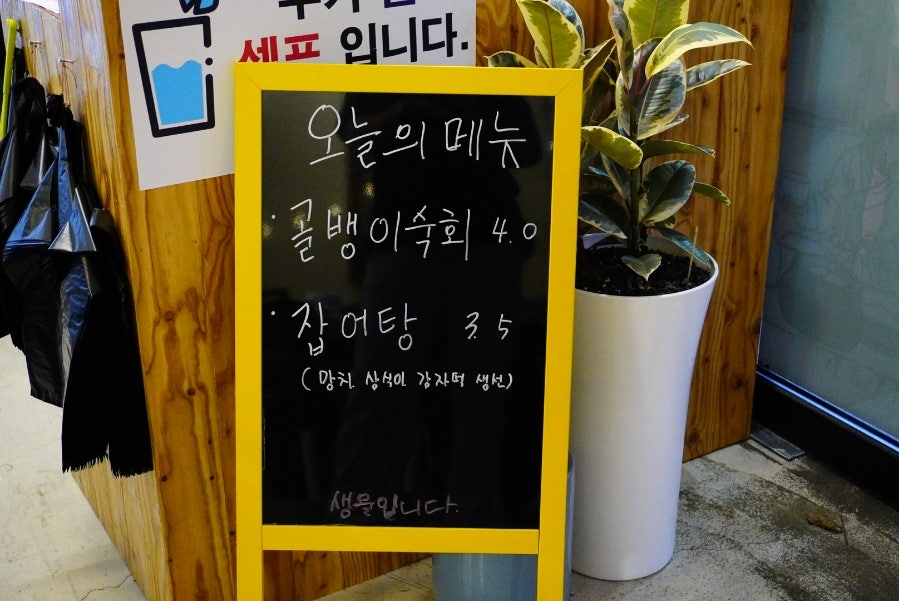 셀프 입니다.
오늘의 메뉴
· 골뱅이숙회 4.0
· 잡어탕 3.5
(망치. 삼식이 감자떡 생선)
생물입니다.